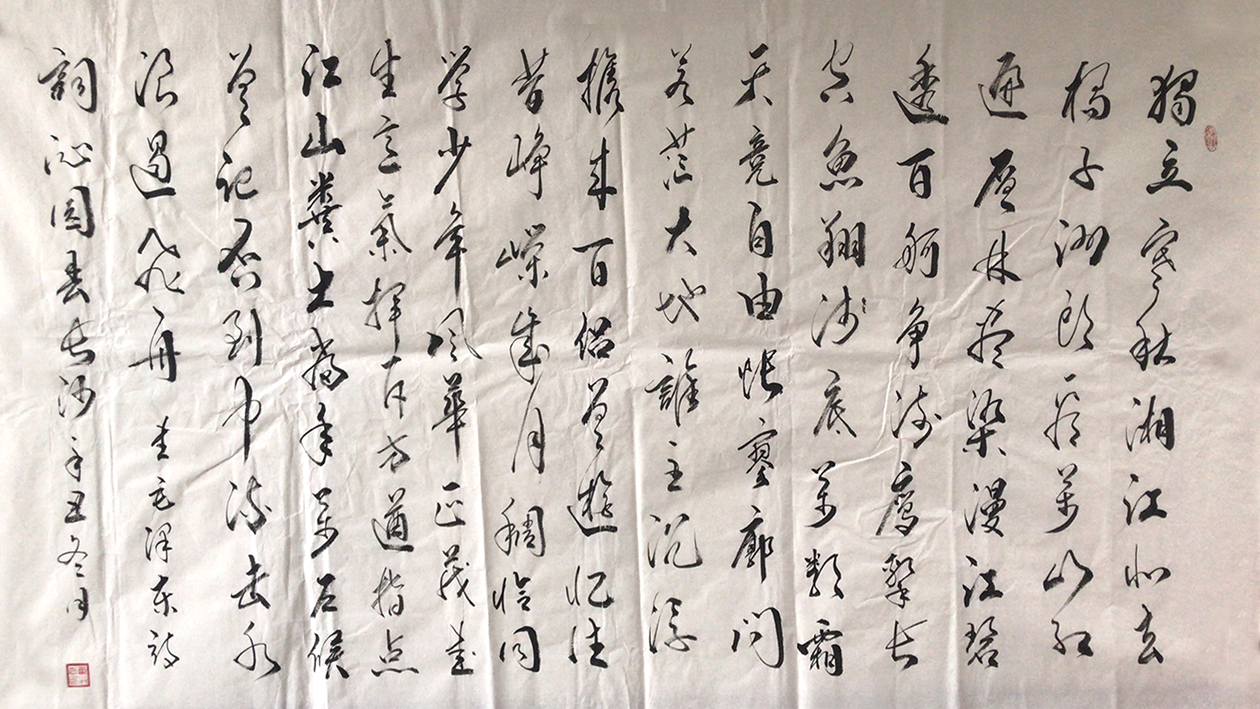 獨立寒秋湘江北去
橘子洲頭看萬山紅
遍層林盡染漫江碧
透百舸爭流鷹擊長
空魚翔淺底萬類霜
天競自由悵寥廓問
蒼茫大地誰主沉浮
攜來百侶曾遊憶往
昔崢嶸歲月稠恰同
學少年風華正茂書
生意氣揮斥方遒指点
江山糞土當年萬户侯
曾記否到中流击水
浪遏飛舟 書毛澤東詩
詞沁園春長沙辛丑冬月